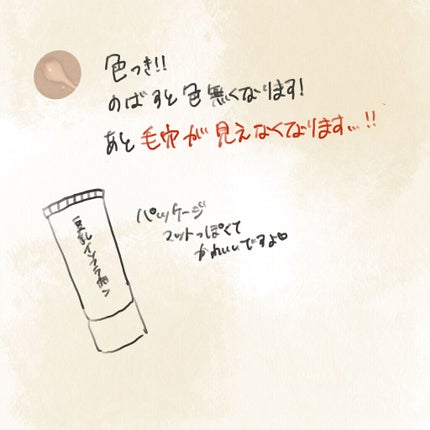 色つき!!
のばすと色無くなります!
あと毛穴が見えなくなります…!!
パッケージ
マットっぽくて
かわいいですよ
豆乳イソフラボン